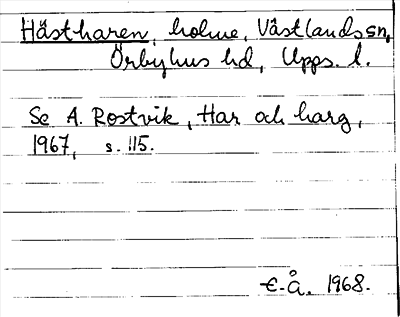 Hästharen, holme, Västlands sn,
Örbyhus hd, Upps. l.
Se A. Rostvik, Har och harg,
1967, s. 115.
E.Å. 1968.